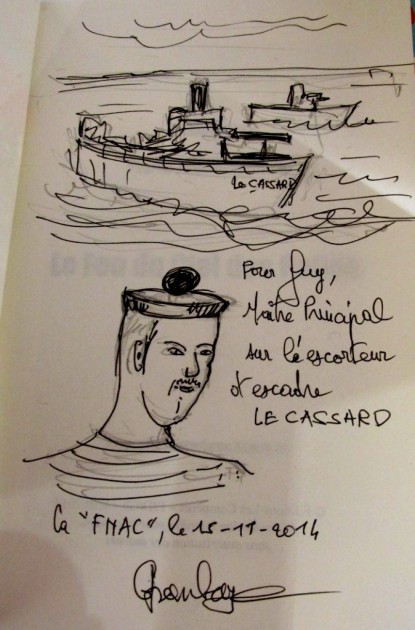 Le CASSARD
Pour Guy,
Maître Principal
sur l'éscorteur
d'escadre
LE CASSARD
La "FNAC", le 15-11-2014